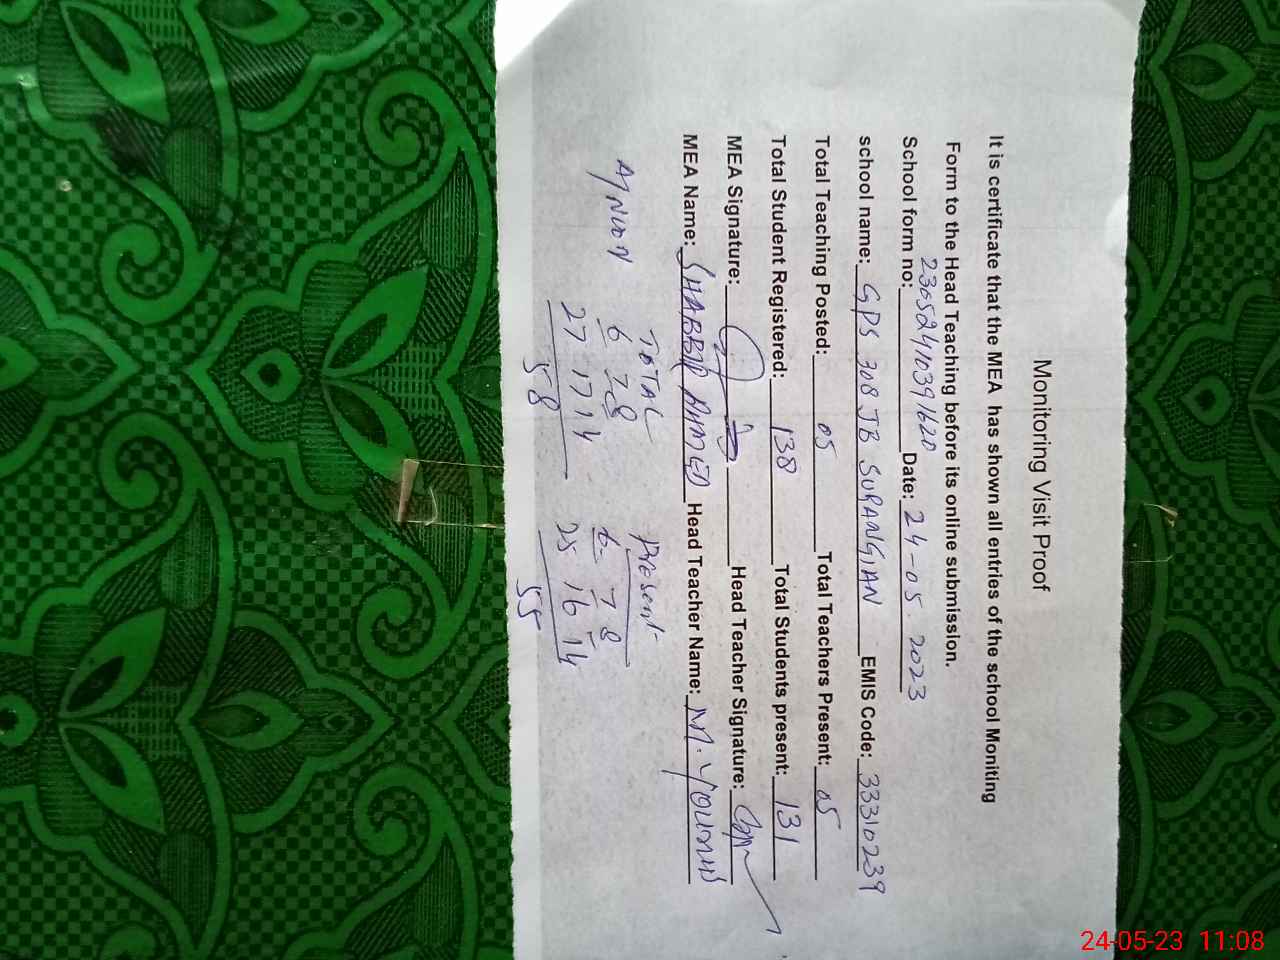 Monitoring Visit Proof
It is certificate that the MEA has shown all entries of the school Moniting
Form to the Head Teaching before its online submission.
School form no: 23052410391620 Date: 24-05 2023
school name: GPS 308 JB SURANGIAN EMIS Code: 33310239
Total Teaching Posted: 05 Total Teachers Present: 05
Total Student Registered: 138 Total Students present: 131
MEA Signature: Head Teacher Signature:
MEA Name: SHABBIR AHMED Head Teacher Name: M. YOUNIS
TOTAL Present
6 7 8 6 7 8
27 17 14 25 16 14
58 55
24-05-23 11:08